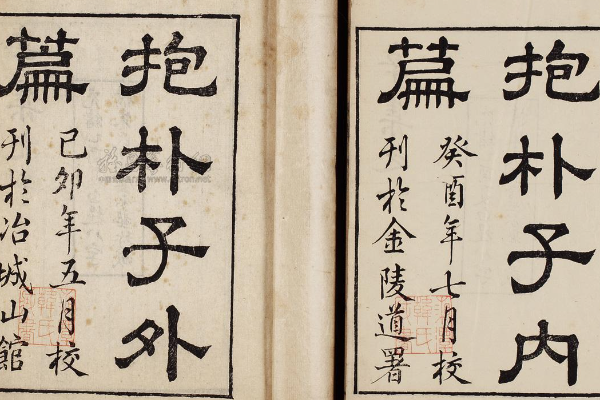 抱朴子內
篇
癸酉年七月校
刊於金陵道署
抱朴子外
篇
已卯年五月校
刊於冶城山館